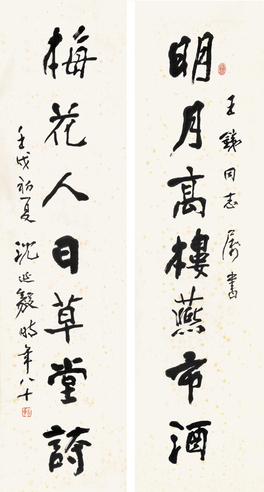 明月高樓燕市酒
王錢同志屬書
梅花人日草堂詩
壬戌初夏沈延毅時年八十